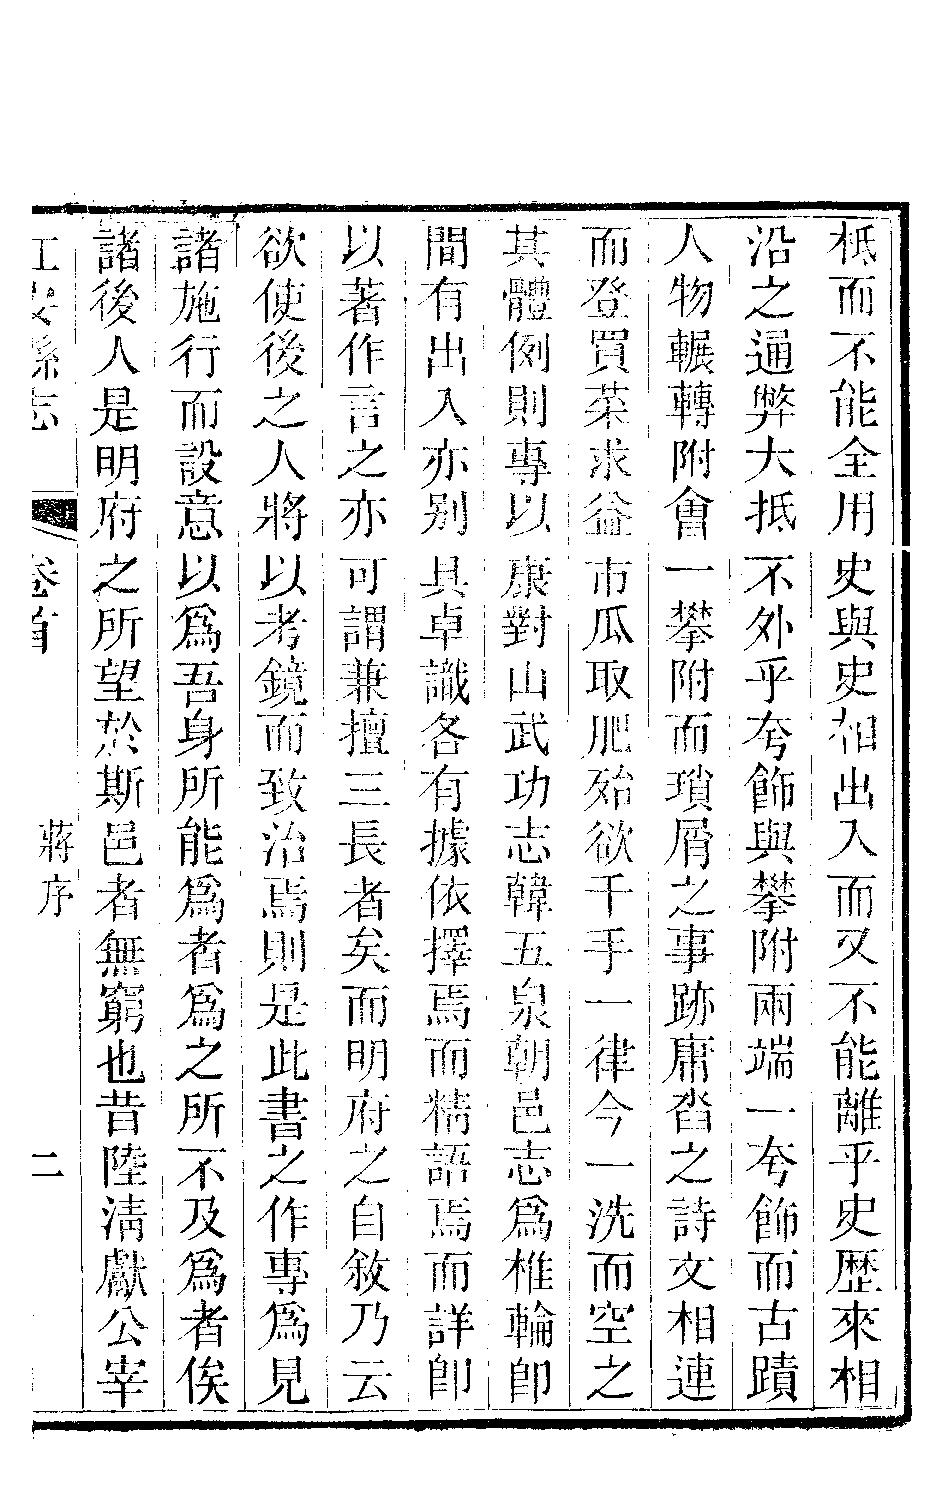 柢而不能全用史與史相出入而又不能離乎史歷來相
沿之通弊大抵不外乎夸飾與攀附兩端一夸飾而古蹟
人物輾轉附會一攀附而瑣屑之事跡庸沓之詩文相連
而登買菜求益市瓜取肥殆欲千手一律今一洗而空之
其體例則專以康對山武功志韓五泉朝邑志爲椎輪卽
間有出入亦別具卓識各有據依擇焉而精語焉而詳卽
以著作言之亦可謂兼擅三長者矣而明府之自敘乃云
欲使後之人將以考鏡而致治焉則是此書之作專爲見
諸施行而設意以爲吾身所能爲者爲之所不及爲者俟
諸後人是明府之所望於斯邑者無窮也昔陸清獻公宰
江安縣志 卷首 蔣序 二